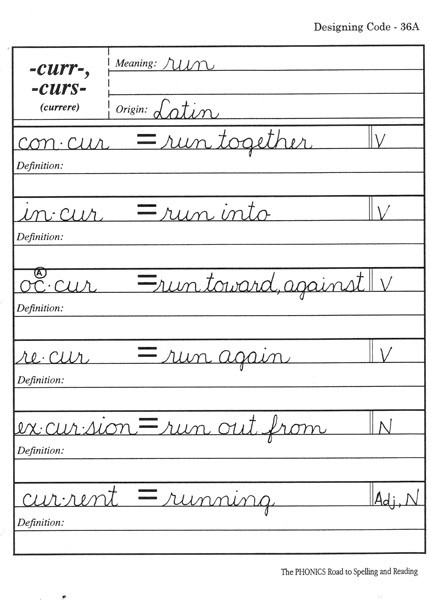 Designing Code - 36A
-curr-,
-curs-
(currere)
Meaning: run
Origin: Latin
con·cur = run together V
Definition:
in·cur = run into V
Definition:
A
oc·cur = run toward, against V
Definition:
re·cur = run again V
Definition:
ex·cur·sion = run out from N
Definition:
cur·rent = running Adj, N
Definition:
The PHONICS Road to Spelling and Reading